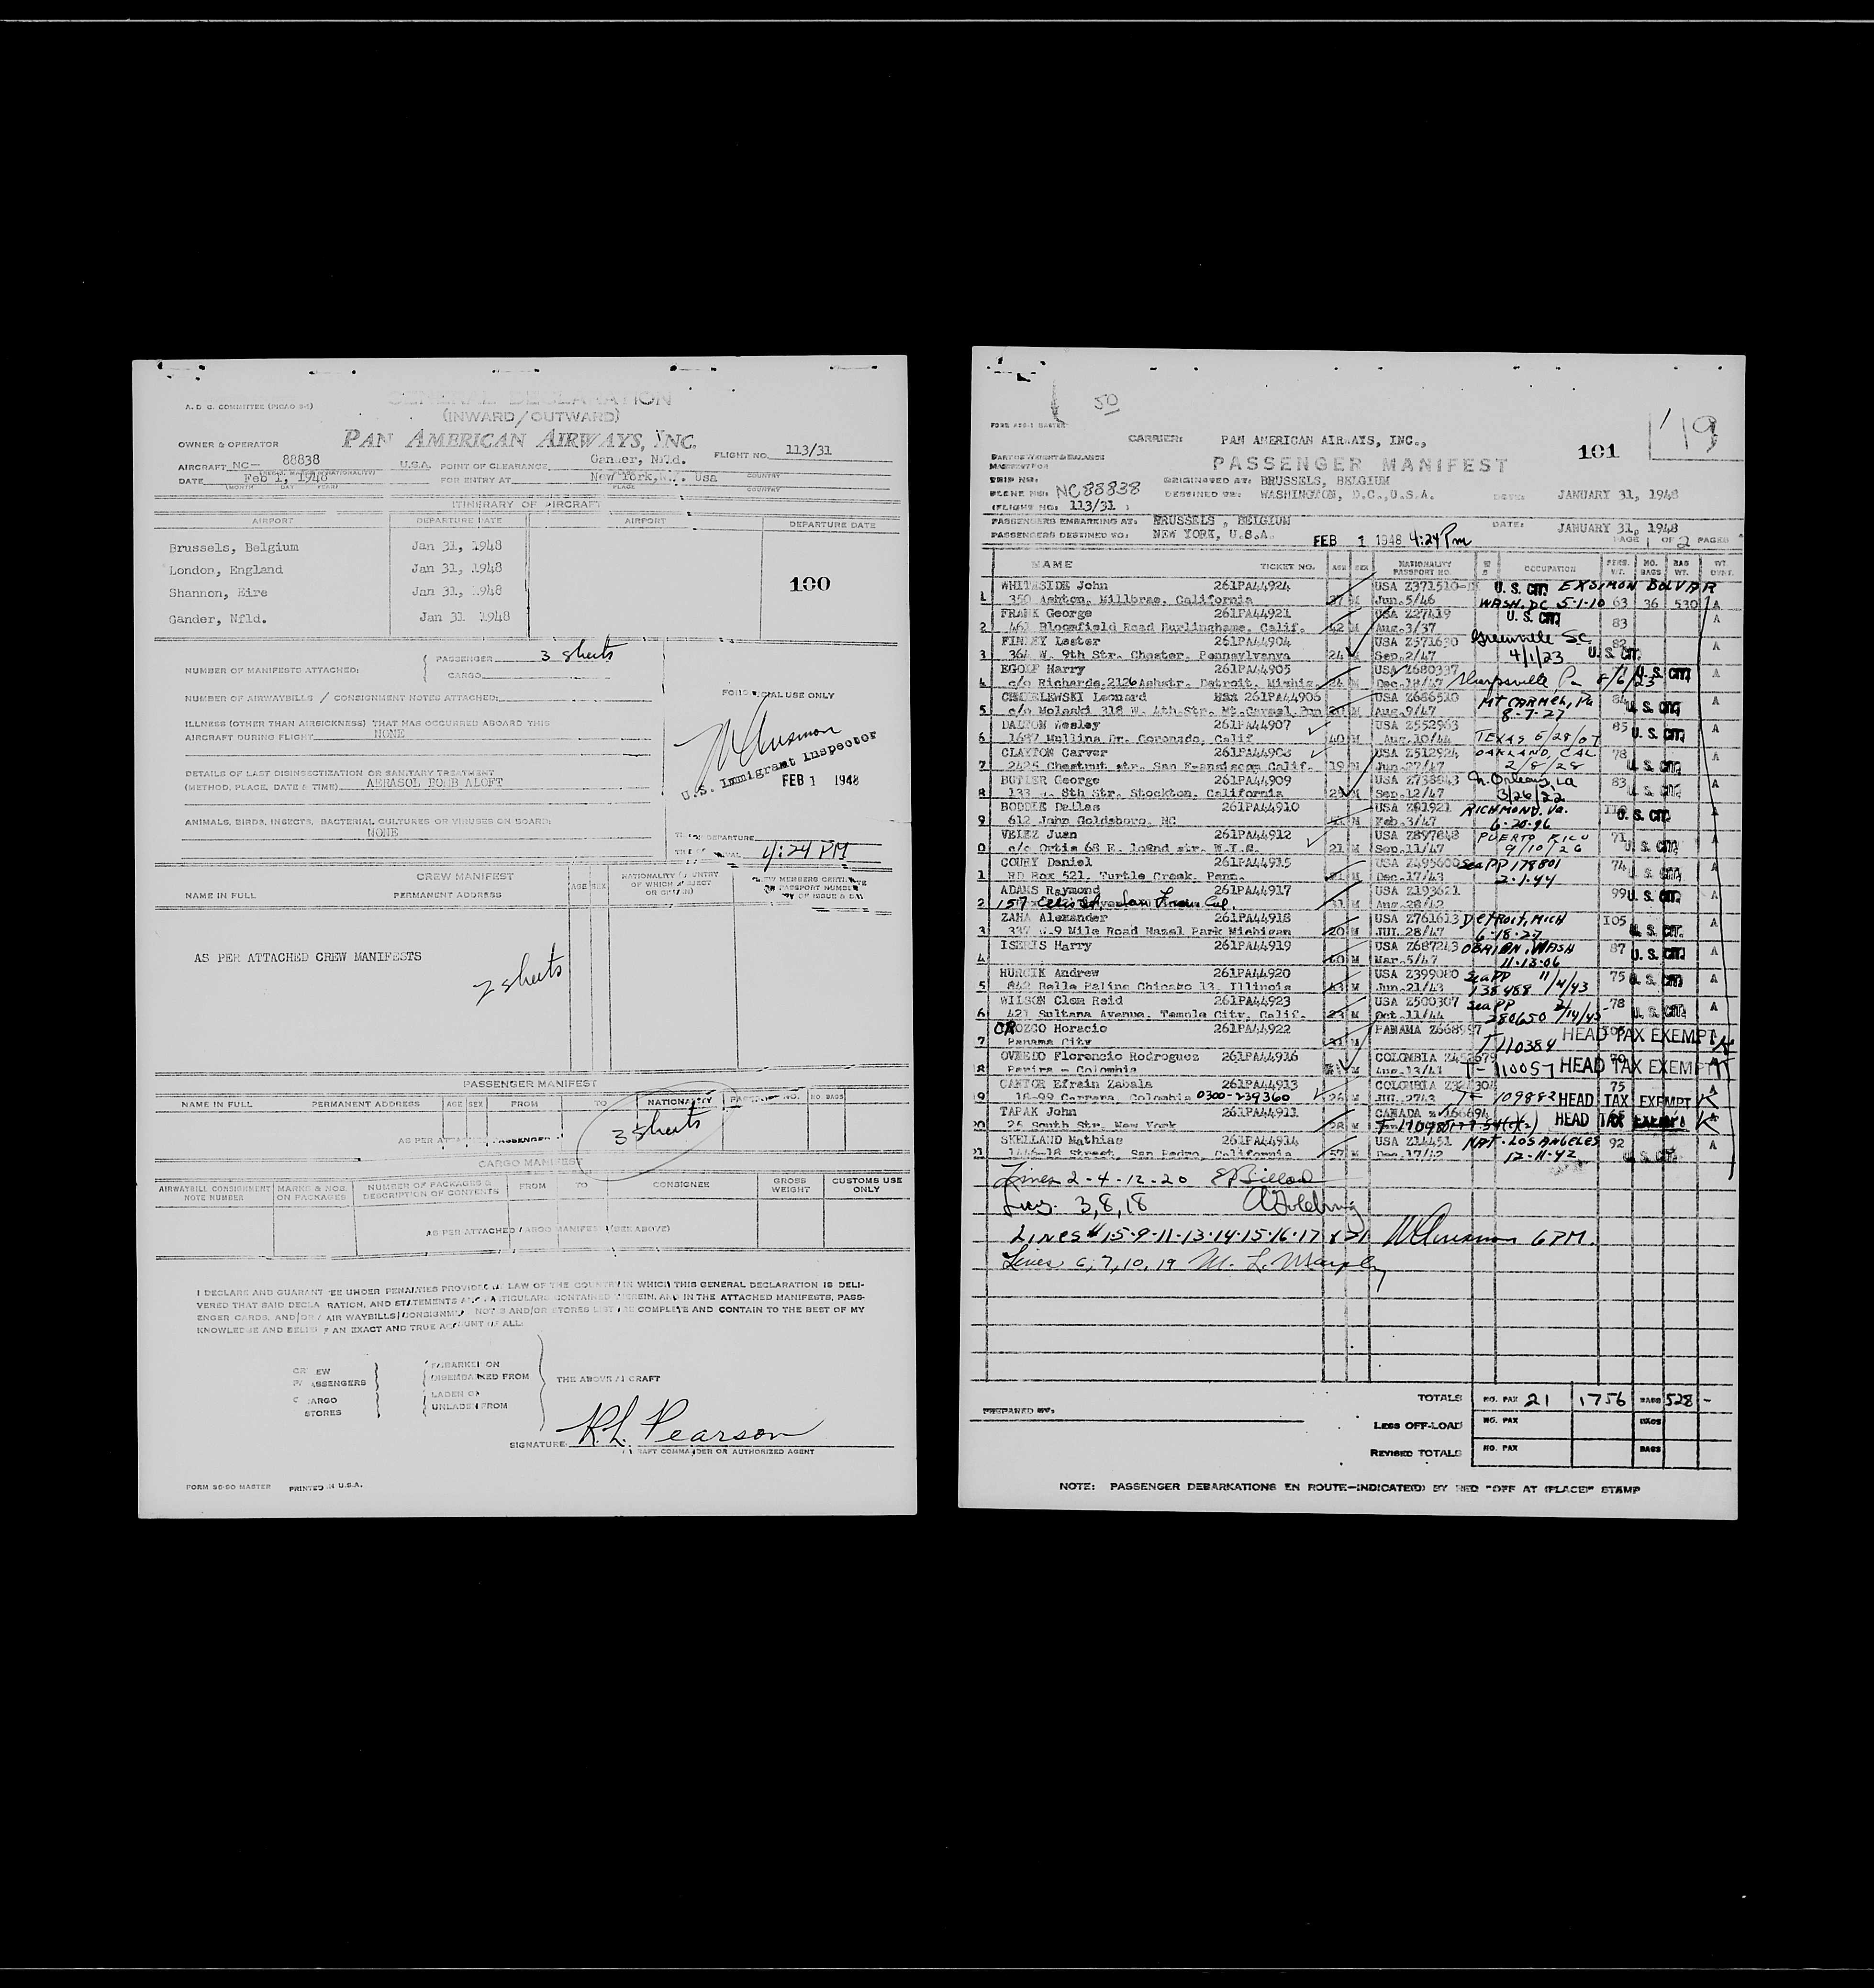 A. D. G. COMMITTEE (PICAO 2-1)
GENERAL DECLARATION
(INWARD/OUTWARD)
PAN AMERICAN AIRWAYS, INC.
OWNER & OPERATOR
AIRCRAFT NC- 88838 U.S.A. POINT OF CLEARANCE Gander, Nfld. FLIGHT NO. 113/31
DATE Feb 1, 1948 FOR ENTRY AT New York, Usa
(MONTH DAY YEAR) PLACE COUNTRY
ITINERARY OF AIRCRAFT
AIRPORT DEPARTURE DATE AIRPORT DEPARTURE DATE
Brussels, Belgium Jan 31, 1948
London, England Jan 31, 1948
Shannon, Eire Jan 31, 1948
Gander, Nfld. Jan 31 1948
100
NUMBER OF MANIFESTS ATTACHED: PASSENGER 3 sheets
CARGO
NUMBER OF AIRWAYBILLS / CONSIGNMENT NOTES ATTACHED:
FOR OFFICIAL USE ONLY
ILLNESS (OTHER THAN AIRSICKNESS) THAT HAS OCCURRED ABOARD THIS
AIRCRAFT DURING FLIGHT NONE
DETAILS OF LAST DISINSECTIZATION OR SANITARY TREATMENT
(METHOD, PLACE, DATE & TIME) AERASOL BOMB ALOFT
U.S. Immigrant Inspector
FEB 1 1948
ANIMALS, BIRDS, INSECTS, BACTERIAL CULTURES OR VIRUSES ON BOARD:
NONE
TIME OF DEPARTURE
TIME OF ARRIVAL 4:24 PM
CREW MANIFEST
NAME IN FULL PERMANENT ADDRESS AGE SEX NATIONALITY (COUNTRY OF WHICH SUBJECT OR CITIZEN)
AS PER ATTACHED CREW MANIFESTS
2 sheets
PASSENGER MANIFEST
NAME IN FULL PERMANENT ADDRESS AGE SEX FROM TO NATIONALITY PASSPORT NO. NO BAGS
AS PER ATTACHED PASSENGER
3 sheets
CARGO MANIFEST
AIRWAYBILL CONSIGNMENT NOTE NUMBER MARKS & NOS. ON PACKAGES NUMBER OF PACKAGES & DESCRIPTION OF CONTENTS FROM TO CONSIGNEE GROSS WEIGHT CUSTOMS USE ONLY
AS PER ATTACHED CARGO MANIFEST (SEE ABOVE)
I DECLARE AND GUARANTEE UNDER PENALTIES PROVIDED BY LAW OF THE COUNTRY IN WHICH THIS GENERAL DECLARATION IS DELI-
VERED THAT SAID DECLARATION, AND STATEMENTS AND PARTICULARS CONTAINED THEREIN, AND IN THE ATTACHED MANIFESTS, PASS-
ENGER CARDS, AND/OR AIR WAYBILLS/CONSIGNMENT NOTES AND/OR STORES LIST ARE COMPLETE AND CONTAIN TO THE BEST OF MY
KNOWLEDGE AND BELIEF AN EXACT AND TRUE ACCOUNT OF ALL:
CREW
PASSENGERS
CARGO
STORES
EMBARKED ON
DISEMBARKED FROM
LADEN ON
UNLADEN FROM
THE ABOVE AIRCRAFT
SIGNATURE: R.L. Pearson
AIRCRAFT COMMANDER OR AUTHORIZED AGENT
FORM 56-90 MASTER PRINTED IN U.S.A.
50
119
CARRIER: PAN AMERICAN AIRWAYS, INC.,
101
PASSENGER MANIFEST
SHIP NO: ORIGINATED AT: BRUSSELS, BELGIUM
PLANE NO: NC88838 DESTINED TO: WASHINGTON, D.C., U.S.A. DATE: JANUARY 31, 1948
(FLIGHT NO: 113/31 )
PASSENGERS EMBARKING AT: BRUSSELS , BELGIUM DATE: JANUARY 31, 1948
PASSENGERS DESTINED TO: NEW YORK, U.S.A. FEB 1 1948 4:24 Pm PAGE 1 OF 2 PAGES
NAME TICKET NO. AGE SEX NATIONALITY PASSPORT NO. OCCUPATION PERS. WT. NO. BAGS BAG WT.
WHITESIDE John 261PA44924 USA Z371510 U.S. CIT. EX SIMON BOLIVAR
1 350 Ashton, Millbrae, California 37 M Jun.5/46 WASH. DC 5-1-10 63 36 530 A
FRANK George 261PA44921 USA Z27419 U.S. CIT.
2 461 Bloomfield Road Burlinghame, Calif. 42 M Aug.3/37 83 A
FINLEY Lester 261PA44904 USA Z371630 Greenville SC 82
3 364 W. 9th Str. Chester, Pennsylvanya 24 Sep.2/47 4/1/23 U.S. CIT. A
EGOLF Harry 261PA44905 USA Z680337
4 c/o Richards, 2126 Ashstr. Detroit, Michig. 24 M Dec.18/47 Sharpsville Pa 8/6/23 U.S. CIT. A
CHMIELEWSKI Leonard 261PA44906 USA Z686510 MT CARMEL, Pa
5 c/o Molaski 318 W. 4th Str. Mt.Carmel Pen 20 M Aug.9/47 8-7-27 84 U.S. CIT. A
DALTON Wesley 261PA44907 USA Z552963 85
6 1697 Mullins Dr. Coronado, Calif 40 M Aug.10/44 TEXAS 5/28/07 U.S. CIT. A
CLAYTON Carver 261PA44908 USA Z512924 OAKLAND, CAL 78
7 2425 Chestnut str. San Fransiscon Calif. 19 M Jun.27/47 2/8/28 U.S. CIT. A
BUTLER George 261PA44909 USA Z738643 N. Orleans, La 83
8 133 8th Str. Stockton, California 25 Sep.12/47 3/26/22 U.S. CIT. A
BODDIE Dallas 261PA44910 USA Z81921 RICHMOND, Va.
9 612 John Goldsboro, NC M Feb.3/47 6-20-96 U.S. CIT. A
VELEZ Juan 261PA44912 USA Z897848 PUERTO RICO 71
0 c/o Ortis 68 E. 102nd str. N.Y.C. 21 M Sep.11/47 9/10/26 U.S. CIT. A
COURY Daniel 261PA44915 USA Z495600 Sea PP 178801 74
1 RD Box 521, Turtle Creek, Penn. 21 M Dec.17/43 2-1-44 U.S. CIT. A
ADAMS Raymond 261PA44917 USA Z193621
2 157 Ellis St., San Fran Cal. 31 M Aug.28/42 99 U.S. CIT. A
ZAHA Alexander 261PA44918 USA Z761613 DETROIT, MICH 105
3 337 W.9 Mile Road Hazel Park Michigan 20 M JUL.28/47 6-18-27 U.S. CIT. A
ISERIS Harry 261PA44919 USA Z687243 OBRIAN, WASH 87
4 40 M Mar.5/47 11-13-06 U.S. CIT. A
HURCIK Andrew 261PA44920 USA Z399080 Sea PP 11/4/43 75
5 842 Belle Palina Chicago 13, Illinois 43 M Jun.21/43 138488 U.S. CIT. A
WILSON Clem Reid 261PA44923 USA Z500307 Sea PP 2/14/45 78
6 421 Sultana Avenue, Temple City, Calif. 23 M Oct.11/44 280650 U.S. CIT. A
OROZCO Horacio 261PA44922 PANAMA Z668997 HEAD TAX EXEMPT
7 Panama City 31 M T 110384
OVIEDO Florencio Rodroguez 261PA44916 COLOMBIA
8 Perira - Colombia Aug.13/41 T- 110057 HEAD TAX EXEMPT
CANTOR Efrain Zabala 261PA44913 COLOMBIA 75
9 18-99 Carrera, Colombia 0300-239360 26 M JUL.2743 T- 109882 HEAD TAX EXEMPT
TAPAK John 261PA44911 CANADA 166494 HEAD TAX EXEMPT
20 25 South Str. New York 28 M
SKELLAND Mathias 261PA44914 USA Z14451 NAT. LOS ANGELES 92 A
21 1446-18 Street, San Pedro, California 57 M Dec.17/42 12-11-42 U.S. CIT.
Lines 2-4-12-20
Lines 3,8,18
LINES # 1.5-9-11-13-14-15-16-17 & 21 6 PM.
Lines 6, 7, 10, 19 M. L. Murphy
TOTALS NO. PAX 21 1756 BAGS 528 -
PREPARED BY:
LESS OFF-LOAD NO. PAX BAGS
REVISED TOTALS NO. PAX BAGS
NOTE: PASSENGER DEBARKATIONS EN ROUTE—INDICATE(D) BY RED "OFF AT (PLACE)" STAMP